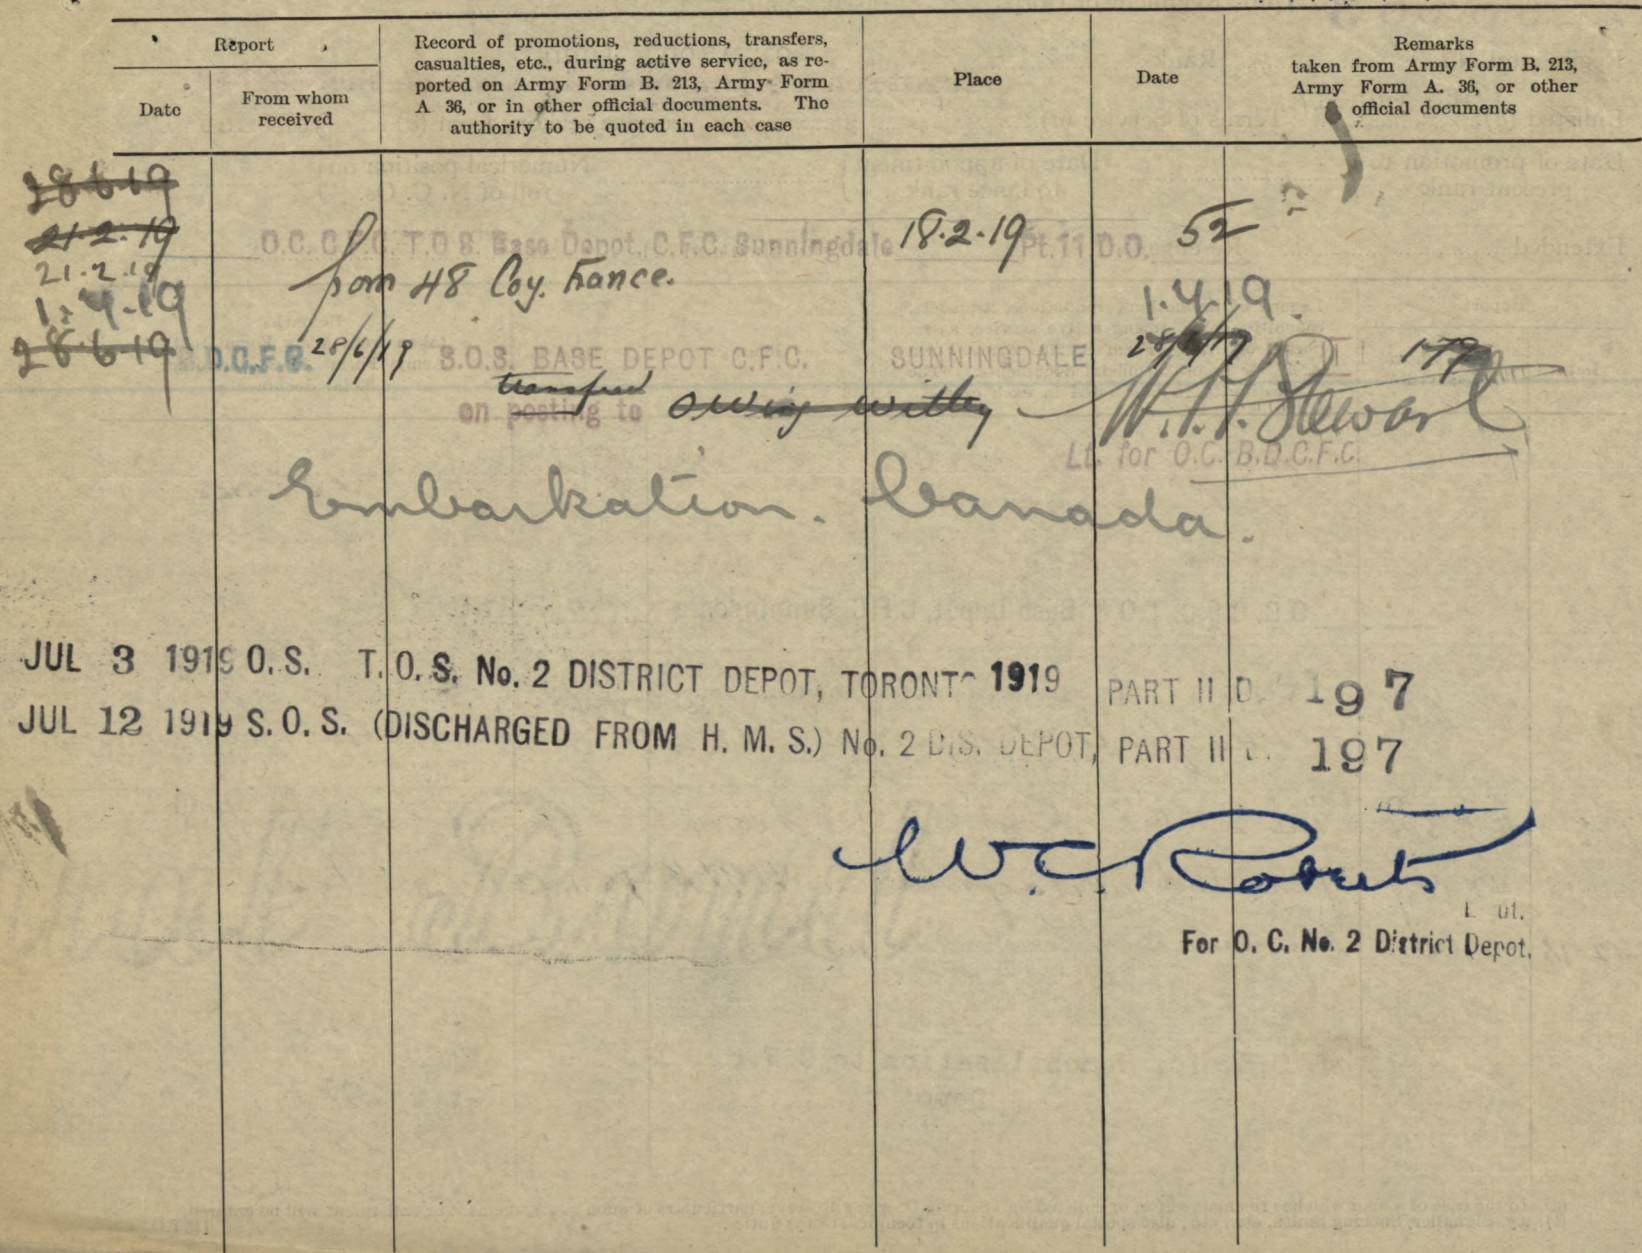 Report
Date
From whom
received
Record of promotions, reductions, transfers,
casualties, etc., during active service, as re-
ported on Army Form B. 213, Army Form
A 36, or in other official documents. The
authority to be quoted in each case
Place
Date
Remarks
taken from Army Form B. 213,
Army Form A. 36, or other
official documents
28.6.19
21.2.19
21.2.19 O.C. C.F.C. T.O.S. Base Depot, C.F.C. Sunningdale 18.2.19 Pt.11 D.O. 52
from 48 Coy. France.
1.4.19 1.4.19
28.6.19 D.C.F.C. 28/6/19 S.O.S. BASE DEPOT C.F.C. SUNNINGDALE 28/6/19 179
on posting to
Stewart
Lt. for O.C. B.D.C.F.C.
Embarkation. Canada.
JUL 3 1919 O.S. T.O.S. No. 2 DISTRICT DEPOT, TORONTO 1919 PART II D. 197
JUL 12 1919 S.O.S. (DISCHARGED FROM H.M.S.) No. 2 DIS. DEPOT, PART II 197
W.C. Roberts
For O. C. No. 2 District Depot.